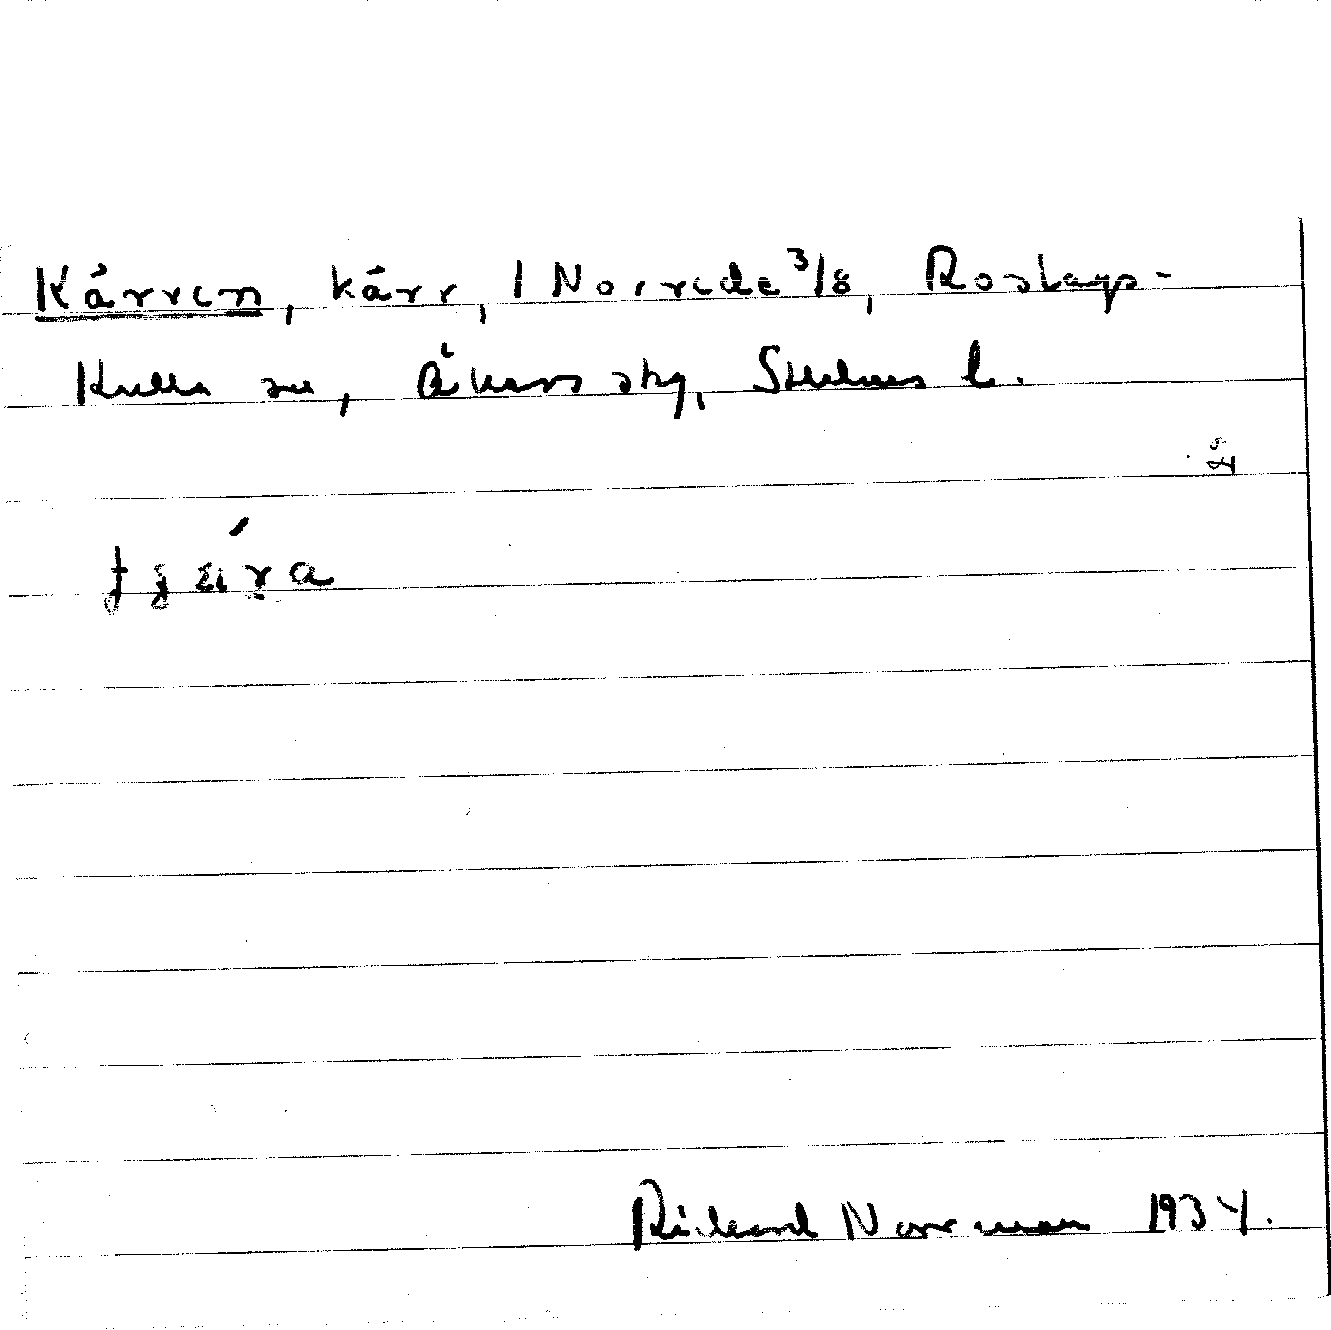 Kärren, kärr, 1 Norrede 3/8, Roslags-
Kulla sn, Åkers skg, Sthlms l.
Rickard Norrman 1934.